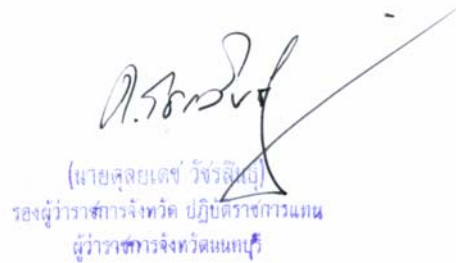 (นายดุลยเดช วัชรสินธุ์)
รองผู้ว่าราชการจังหวัด ปฏิบัติราชการแทน
ผู้ว่าราชการจังหวัดนนทบุรี